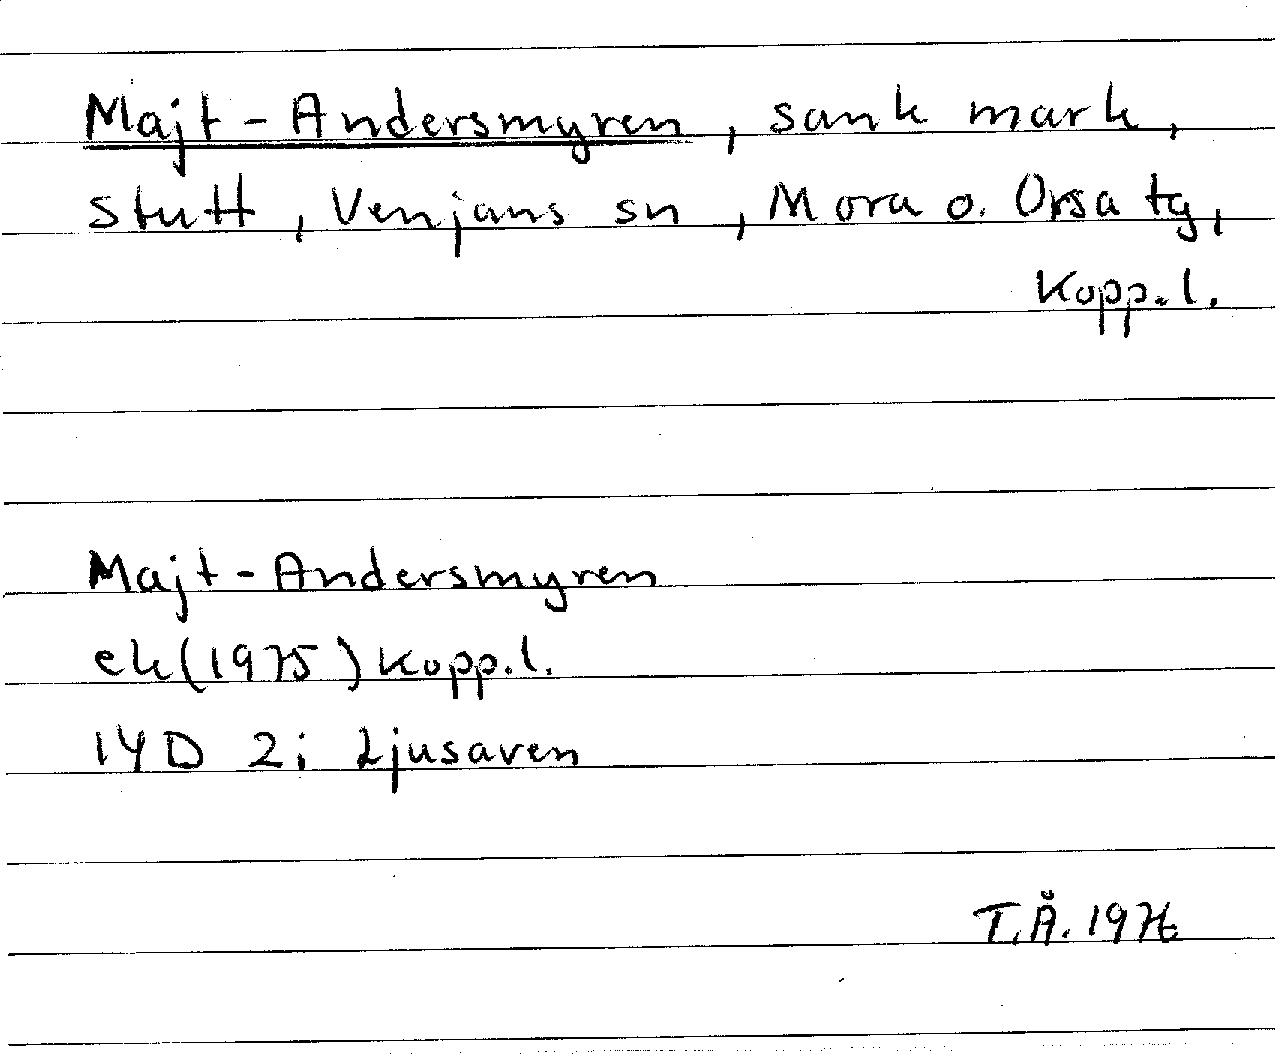 Majt-Andersmyren, sank mark,
stutt, Venjans sn, Mora o. Orsa tg,
Kopp.l.
Majt-Andersmyren
ek(1975)Kopp.l.
14D 2i Ljusaven
T.Å. 1976